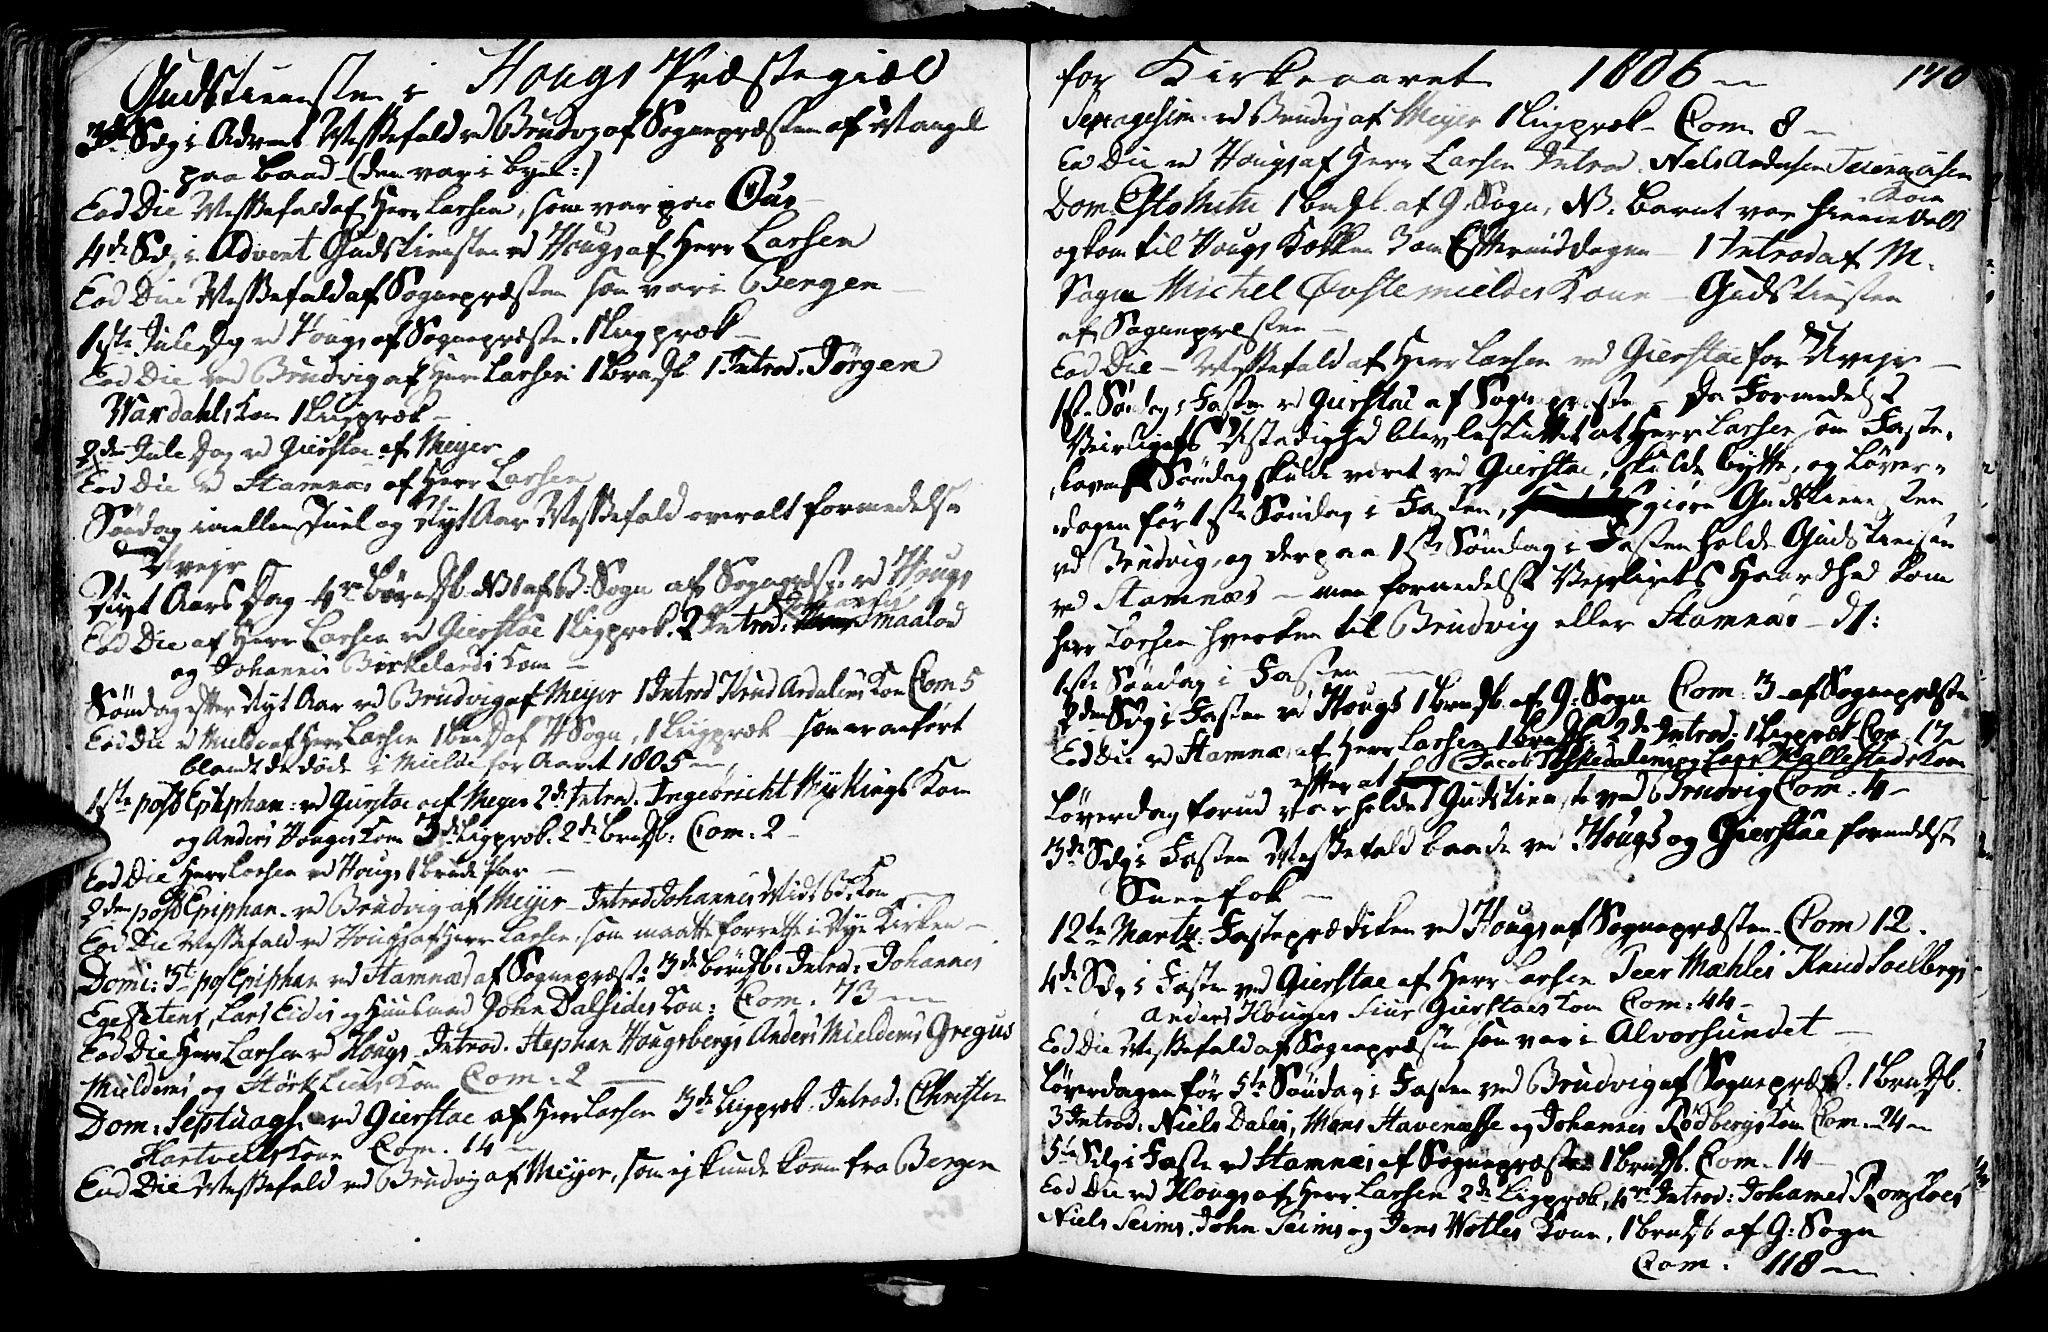 Gudstienesten i Hougs Præstegiæld
3die Sdg i Advent Messefald ved Brudvig af Sognepræsten af Mangel
paa Baad (den var i Byen:)
Eod Die Messefald af Herr Larsen, som var paa Ous
4de Sdg i Advent Gudstienesten ved Hougs af Herr Larsen
Eod Die Messefald af Sognepræsten som var i Bergen
1ste Jule Dag ved Hougs af Sognepræsten. 1 Liigpræk
Eod Die ved Brudvig af Herr Larsen 1 Brn Db. 1 Introd. Jørgen
Wardahls Kone 1 Liigpræk
2den Jule Dag ved Gierstae af Meyer
Eod Die ved Stamnæs af Herr Larsen
Søndag imellem Juel og Nyt Aar Messefald overalt formedelst
Uvejr
Nyt Aars Dag 4re Børn Db. NB 1 af B: Sogn af Sognepræst: ved Hougs
Eod Die af Herr Larsen ved Gierstae 1 Liigpræk. 2 Introd: Smaalod
og Johannis Birkelands Kone
Søndag efter Nyt Aar ved Brudvig af Meyer 1 Introd Knud Ardalens Kone Com 5
Eod Die ved Mielde af Herr Larsen 1 Brn Db af H Sogn, 1 Liigpræk som er anført
blandt de døde i Mielde for Aaret 1805
1ste post Epiphan: ved Gierstae af Meyer 2de Introd. Ingebricht Rykings Kone
og Anders Houges Kone 3de Liigpræk. 2de Brn Db: Com: 2
Eod Die Herr Larsen ved Hougs 1 Brude Par
2den post Epiphan. ved Brudvig af Meyer Introd Johannis Kone
Eod Die Messefald ved Hougs af Herr Larsen som maatte forrette i Nye Kirken
Domi: 3t pos Epiphan ved Stamnæs af Sognepræst: 3de Børn Db: Introd: Johannes
Egesetens, Lars Eides og John Dalseides Kone: Com. 73
Eod Die Herr Larsen ved Hougs Introd. Stephan Hougsbergs Anders Mieldens Gregus
Mieldens og Størk Kone Com. 2
Dom: Septuags. ved Gierstae af Herr Larsen 3de Liigpræk. Introd. Christen
Hartvells Kone Com. 14
Eod Die Messefald ved Brudvig af Meyer, som ej kunde komme fra Bergen
for Kirkeaaret 1806 140
Sexagesim. ved Brudvig af Meyer 1 Liigpræk. Com 8
Eo Die ved Hougs af Herr Larsen Introd. Nels Andersen
Kone
Dom. Esto Mihi 1 Brn Db. af G. Sogn, NB. Barnet var hiemme
og kom til Hougs Klokken 3 om Eftermiddagen 1 Introd af M.
Sogn Michel Øvste mieldes Kone Gudstienesten
af Sognepræsten
Eod Die Messefald af Herr Larsen ved Gierstae for Uvejr
1ste Søndag i Fasten ved Gierstae af Sognepræsten Da Formedelst
Veirligets Ustadighed blev besluttet at Herr Larsen som Faste-
lavns Søndag skulde været ved Gierstae, skulde bytte, og Løver-
dagen før 1ste Søndag i Fasten, giøre Gudstienesten
ved Brudvig, og derpaa 1ste Søndag i Fasten holde Gudstienesten
ved Stamnæs men formedelst Vejrligets Haardhed kom
Herr Larsen hverken til Brudvig eller Stamnæs
1ste Søndag i Fasten
2den Sdg i Fasten ved Hougs 1 Brn Db. af G: Sogn Com. 3 af Sognepræsten
Eod Die ved Stamnæs af Herr Larsen 1 Brn Db 2de Introd: 1 Liigpræk Com. 17
Jacob og Lars Hallestads Kone
Løverdag forud efter at var holdet Gudstieneste ved Brudvig Com: 4
3de Sdg i Fasten Messefald baade ved Hougs og Gierstae formedelst
Sneefok
12te Martz. Fasteprædiken ved Hougs af Sognepræsten Com 12.
4de Sdg i Fasten ved Gierstae af Herr Larsen Peer Mæhles Knud Soelbergs
Anders Houges Siur Gierstaes Kone Com: 44
Eod Die Messefald af Sognepræsten som var i Alvorsundet
Løverdagen før 5te Søndag i Fasten ved Brudvig af Sognepræst. 1 Brn Db.
3 Introd. Niels Dales, Mons Stavenesse og Johannes Rødbergs Kone Com. 24
5te Sdg i Faste ved Stamnæs af Sognepræsten 1 Brn Db. Com. 14
Eod Die ved Hougs af Herr Larsen 2de Liigpræk, 4re Introd: Johannes Romsloes
Niels Seims. John Seims og Jens Kone, 1 Brn Db af G: Sogn
Com: 118